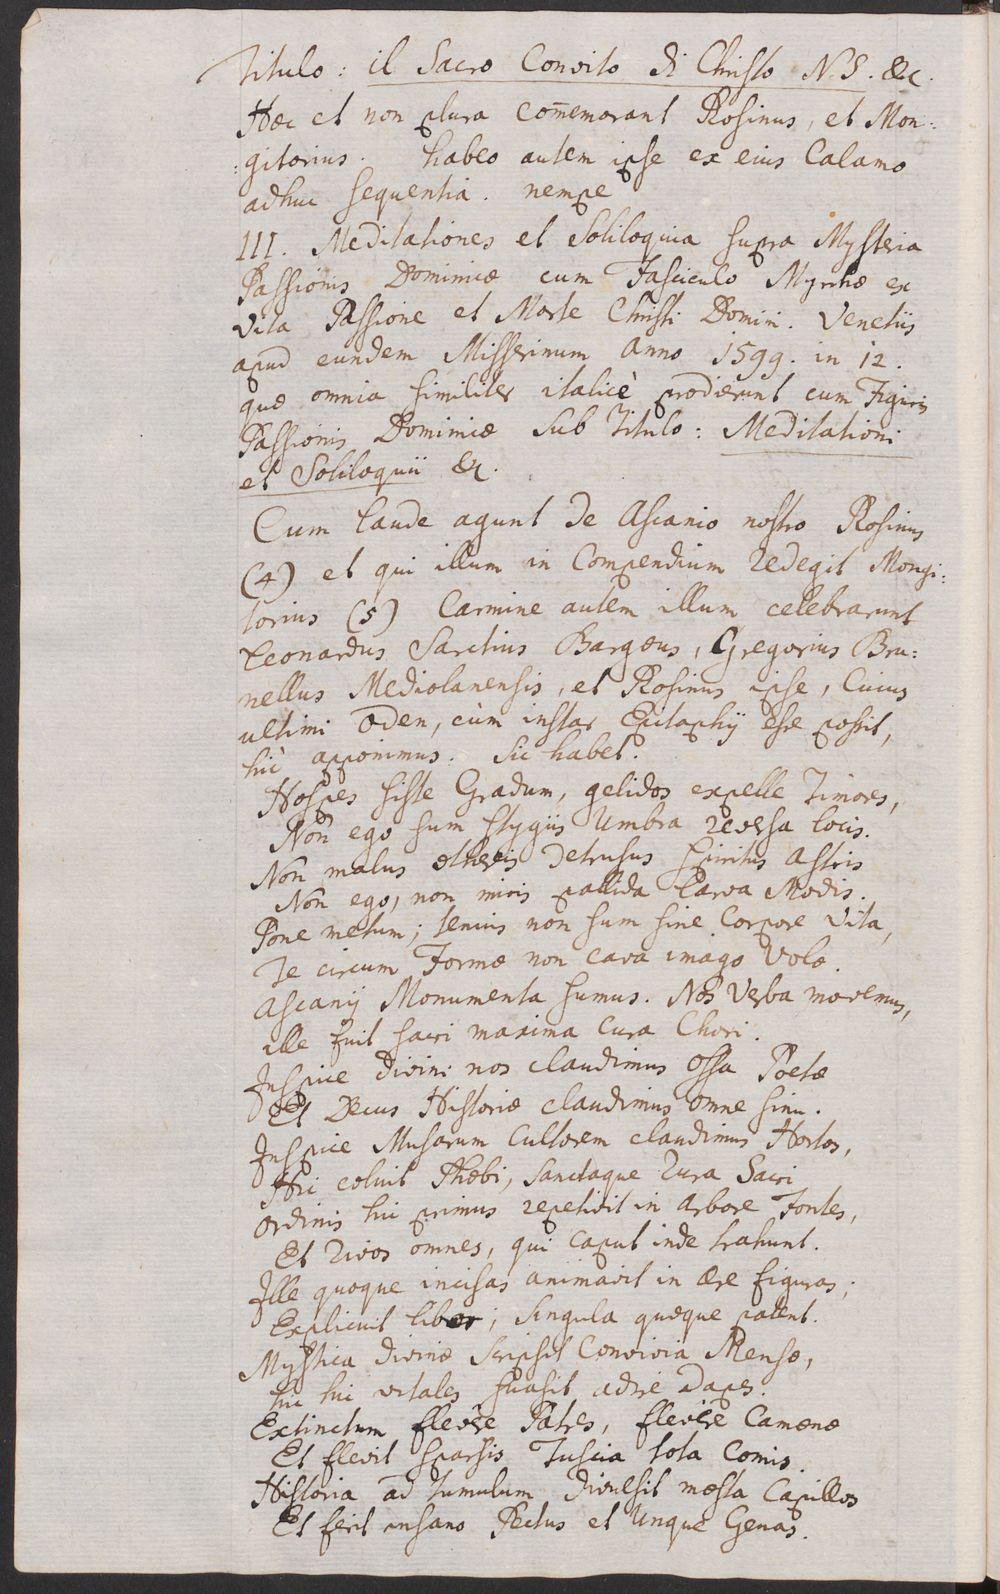 Titulo: il Sacro Convito di Christo N. S. &c.
Hæc et non plura com̄emorant Rosinus, et Mon:
:gitorius. habeo autem ipse ex eius Calamo
adhuc sequentia. nempe
III. Meditationes et Soliloquia supra Mysteria
Passionis Dominicæ cum Fasciculo Myrrhæ ex
Vita Passione et Morte Christi Domini. Venetiis
apud eundem Misserinum Anno 1599. in 12.
quæ omnia similiter italicè prodierunt cum Figuris
Passionis Dominicæ Sub Titulo: Meditationi
et Soliloquii &c.
Cum laude agunt de Ascanio nostro Rosinus
(4) et qui illum in Compendium redegit Mongi:
torius (5) Carmine autem illum celebrarunt
Leonardus Sarctius Bargæus, Gregorius Bru:
nellus Mediolanensis, et Rosinus ipse, Cuius
ultimi Oden, cùm instar Epitaphij esse possit,
hic apponimus. Sic habet.
Hospes siste Gradum, gelidos expelle Timores,
Non ego sum stygiis Umbra reversa locis.
Non malus ætheris detrusus spiritus Astris
Non ego, non miris pallida Larva Modis.
Pone metum; tenuis non sum sine Corpore Vita,
Te circum Formæ non cava imago Volo.
Ascanij Monumenta sumus. Nos Verba movemus,
ille fuit sacri maxima Cura Chori.
Inspice divini nos claudimus Ossa Poetæ
Et Decus Historiæ claudimus omne sinu.
Inspice Musarum Cultorem claudimus Hortos,
Hic coluit Phœbi, Sanctaque Iura Sacri
Ordinis hic primus repetivit in Arbore Fontes,
Et Rivos omnes, qui Caput inde trahunt.
Ille quoque incisas animavit in Ære figuras;
Explicuit liber; singula quæque patent.
Mystica divinæ Scripsit Convivia Mensæ,
hic hic vitales suasit adire Dapes.
Extinctum flevere Patres, flevere Camœnæ
Et flevit sparsis Tuscia tota Comis.
Historia ad Tumulum divulsit mœsta Capillos
Et ferit insano Pectus et Ungue Genas.